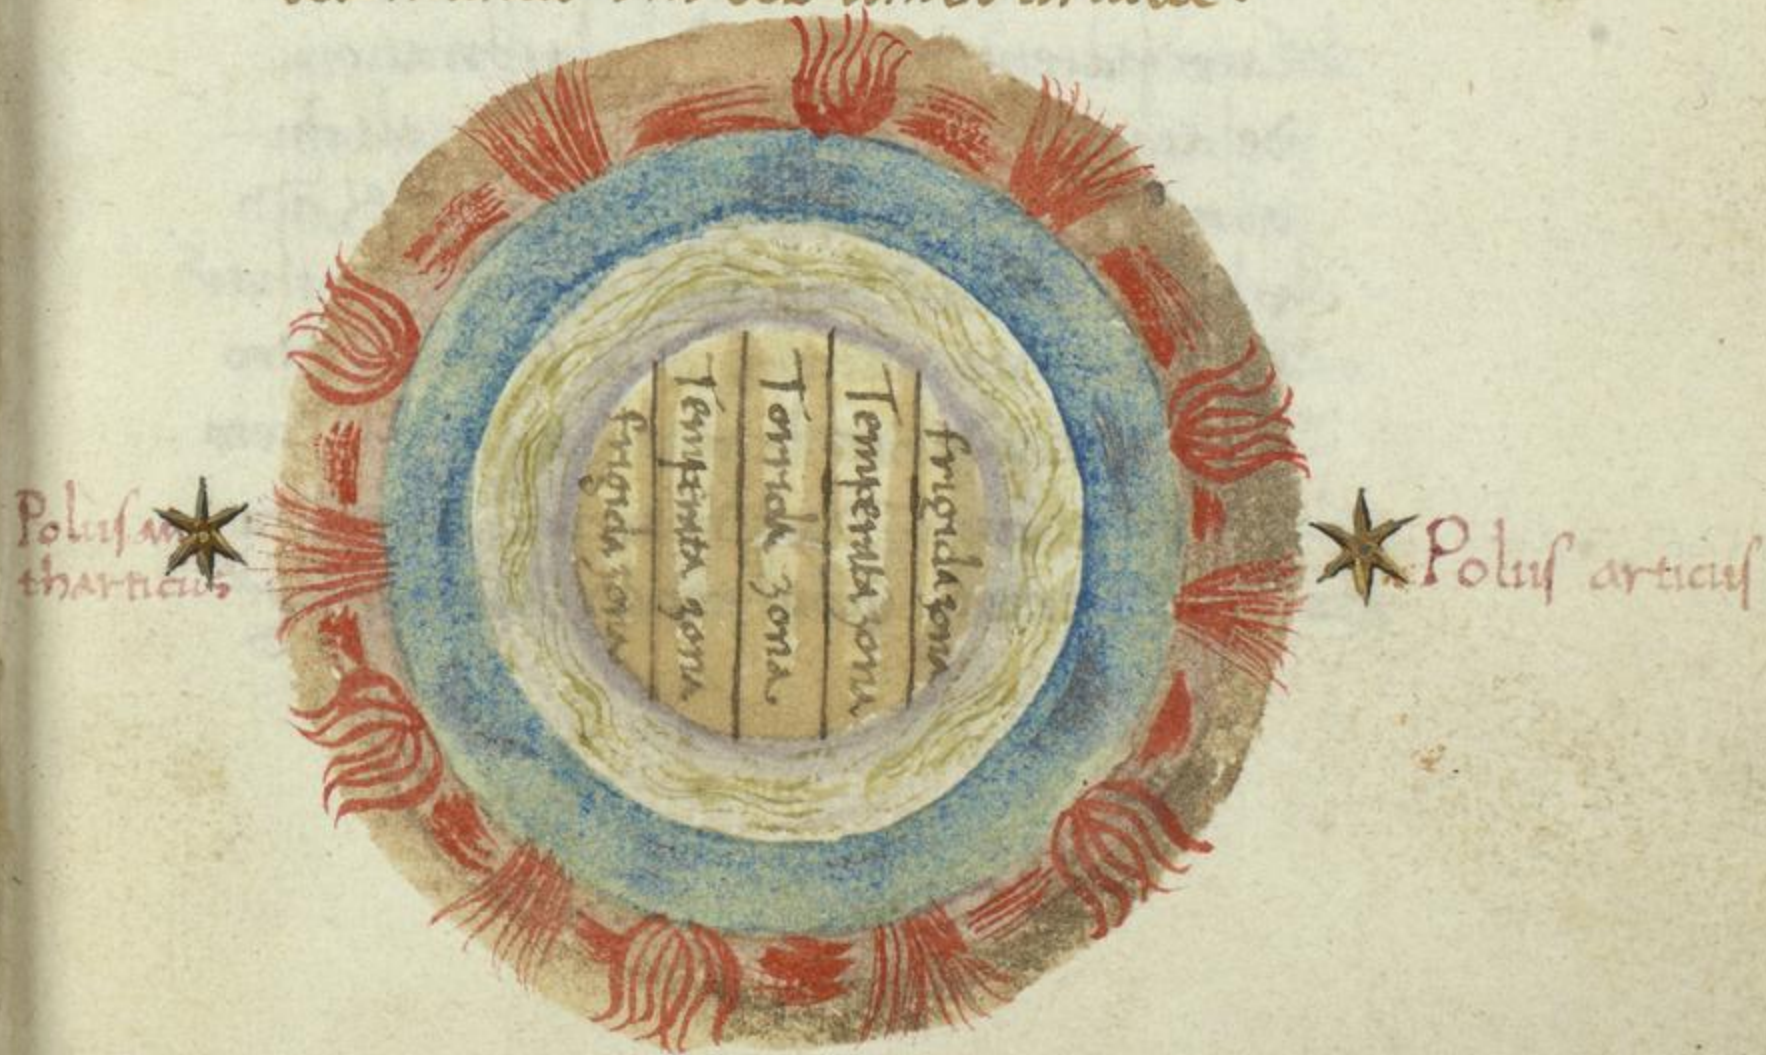 Polus an
tharticus
frigida zona
Temperata zona
Torrida zona.
Temperata zona
frigida zona
Polus articus